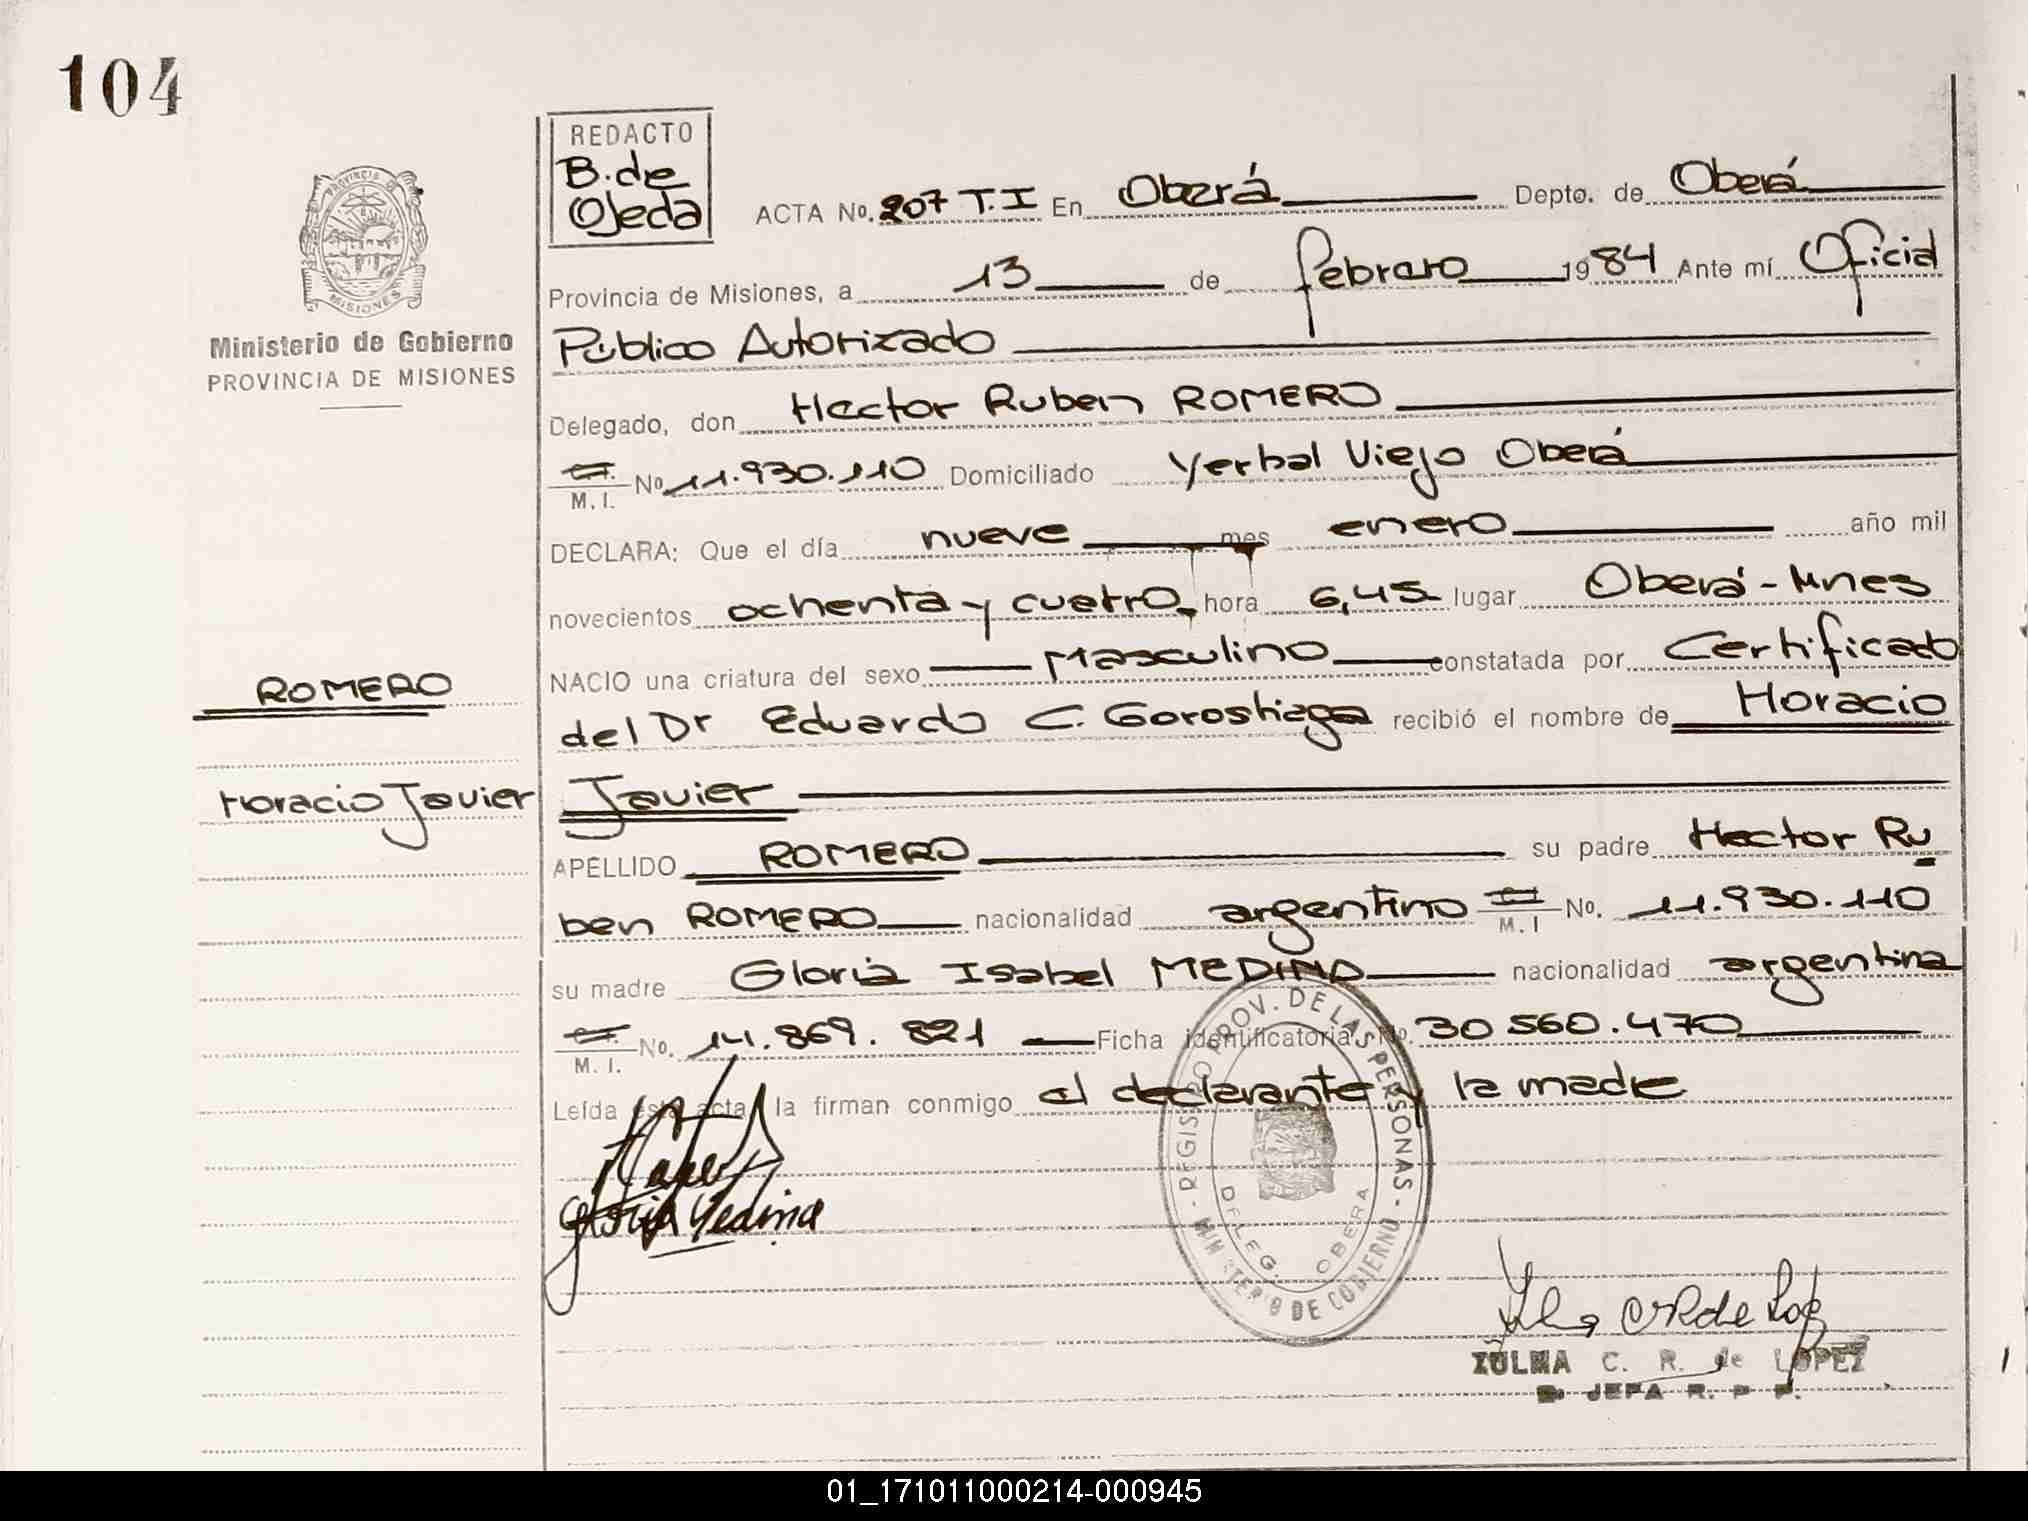 104
REDACTO
B. de
Ojeda
PROVINCIA DE
MISIONES
Ministerio de Gobierno
PROVINCIA DE MISIONES
ACTA No. 207 T.I En Oberá Depto. de Oberá
Provincia de Misiones, a 13 de febrero 1984 Ante mí Oficial
Público Autorizado
Delegado, don Hector Ruben ROMERO
M. I. No 11.930.110 Domiciliado Yerbal Viejo Oberá
DECLARA: Que el día nueve mes enero año mil
novecientos ochenta y cuatro hora 6,45 lugar Oberá - Mnes
NACIO una criatura del sexo Masculino constatada por Certificado
del Dr Eduardo C. Gorostiaga recibió el nombre de Horacio
Javier
ROMERO
Horacio Javier
APELLIDO ROMERO su padre Hector Ru
ben ROMERO nacionalidad argentino M. I No. 11.930.110
su madre Gloria Isabel MEDINA nacionalidad argentina
M. I. No. 14.869.821 Ficha identificatoria No. 30 560.470
Leída esta acta, la firman conmigo el declarante y la madre
Gloria Medina
REGISTRO PROV. DE LAS PERSONAS - MINISTERIO DE GOBIERNO -
DELEG. OBERA
ZULMA C. R. de LOPEZ
JEFA R. P P.
01_171011000214-000945